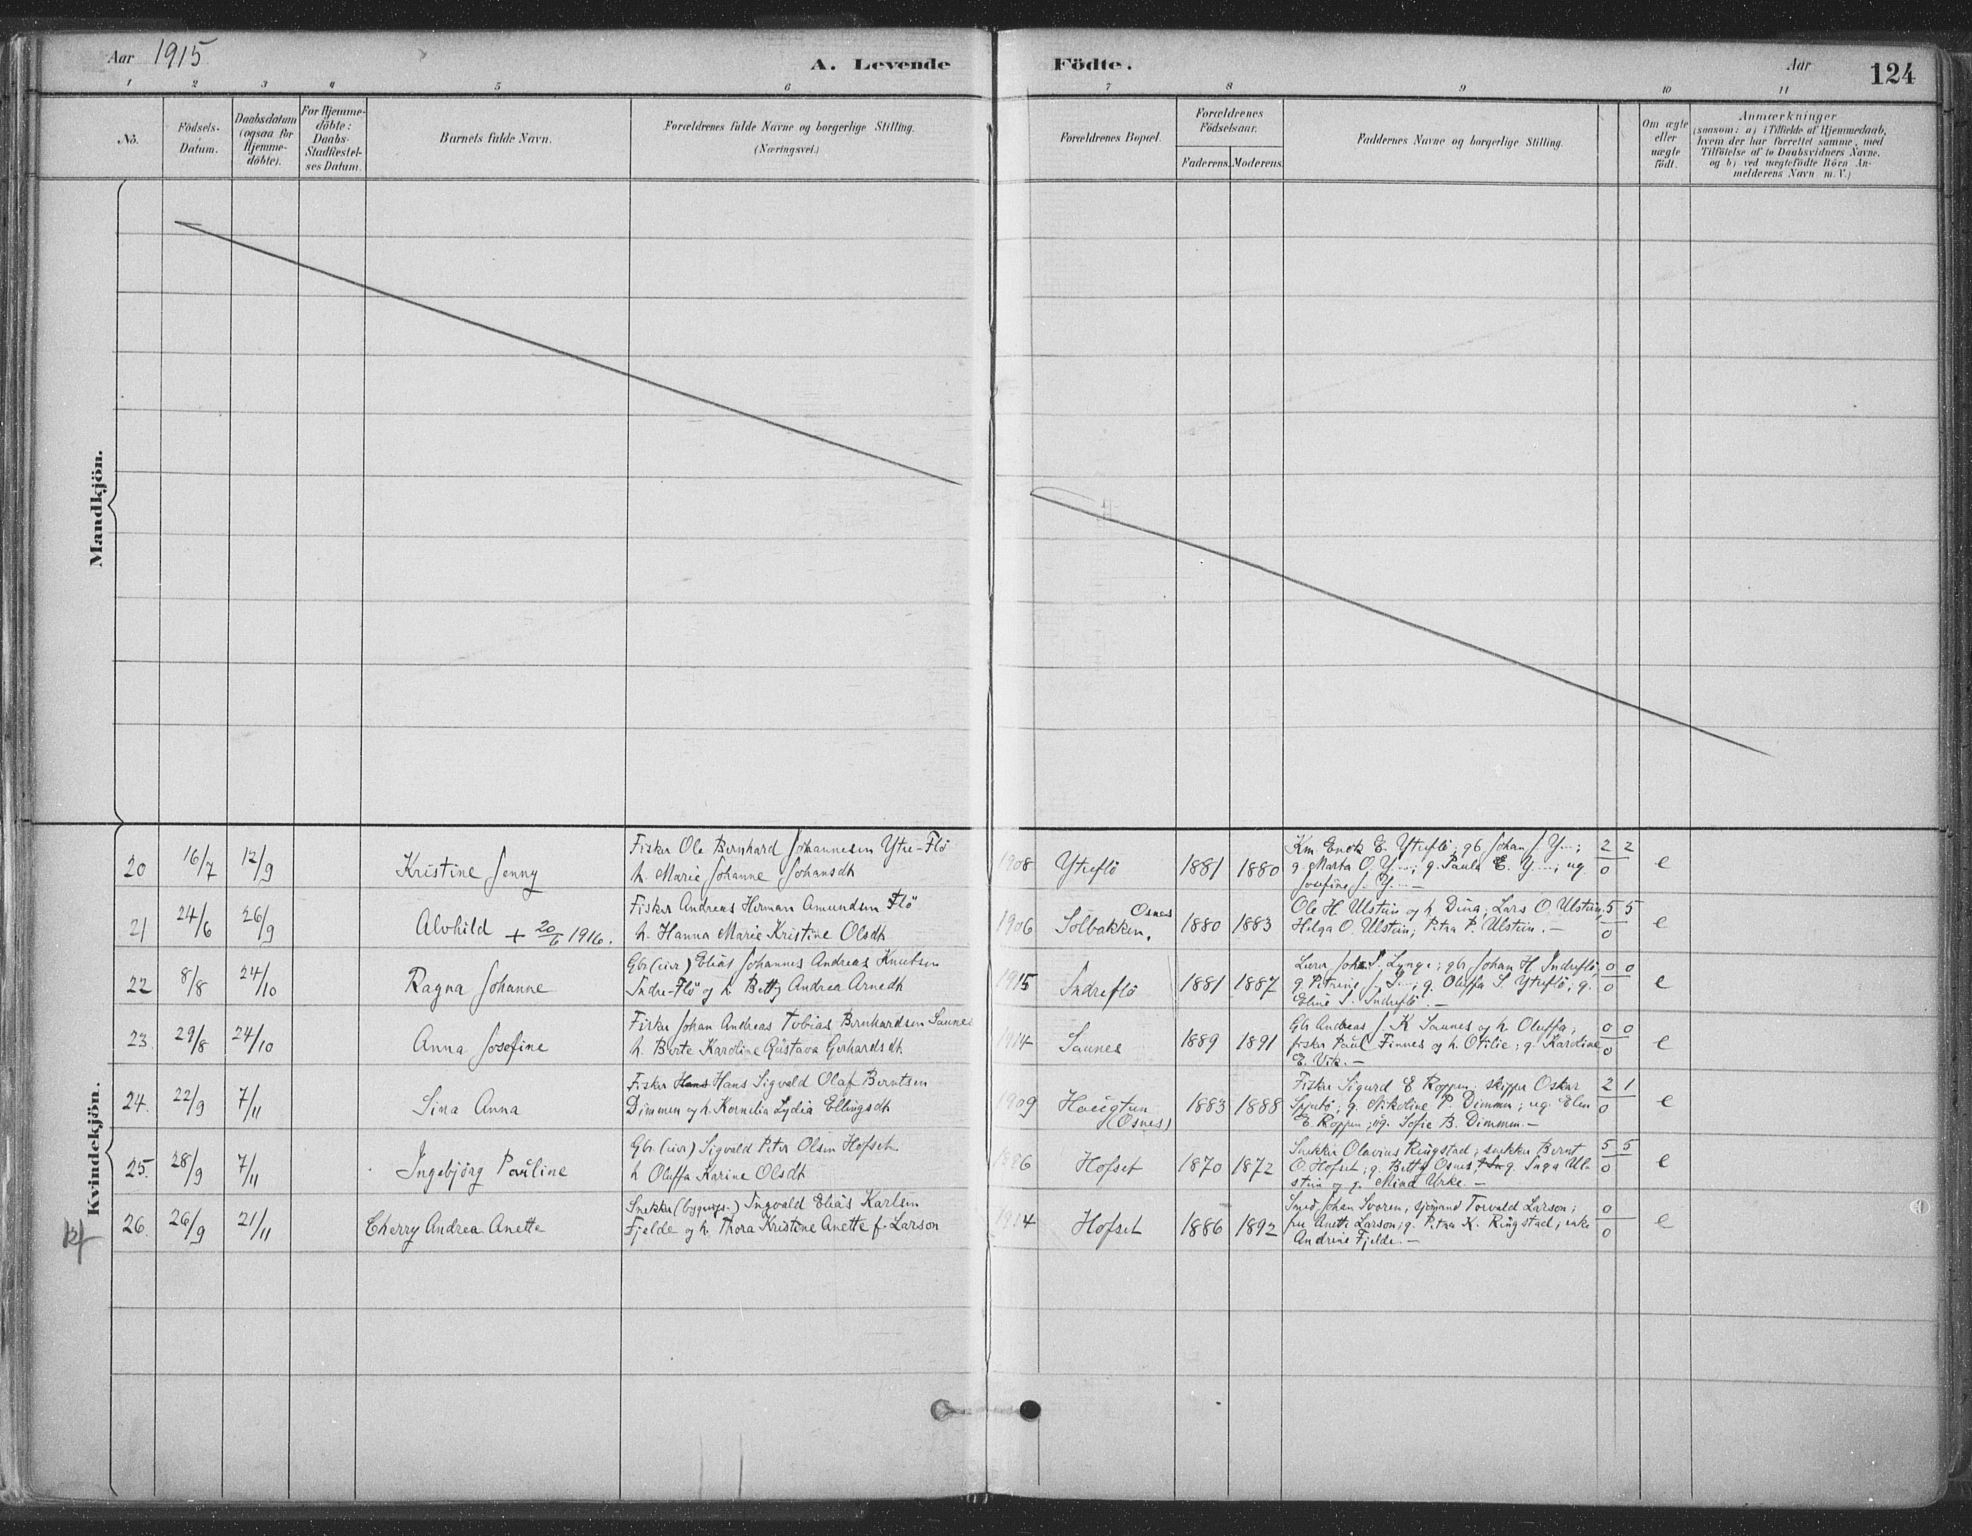 Aar 1915 A. Levende Födte. Aar 124
1 2 3 4 5 6 7 8 9 10 11
No.
Födsels-
Datum.
Daabsdatum
(ogsaa for
Hjemme-
döbte).
For Hjemme-
döbte:
Daabs-
Stadfæstel-
ses Datum.
Barnets fulde Navn.
Forældrenes fulde Navne og borgerlige Stilling.
(Næringsvei.)
Forældrenes Bopæl.
Forældrenes
Födselsaar.
Faderens. Moderens.
Faddernes Navne og borgerlige Stilling.
Om ægte
eller
uægte
födt.
Anmærkninger
(saasom: a) i Tilfælde af Hjemmedaab,
hvem der har forrettet samme, med
Tilföielse af to Daabsvidners Navne,
og b) ved uægtefödte Börn An-
melderens Navn m. V.)
Mandkjön.
Kvindekjön.
20 16/7 12/9 Kristine Jenny
Fisker Ole Bernhard Johannesen Ytre-Flö
h. Marie Johanne Johansdt
1908 Ytreflö 1881 1880
Km Enok E. Ytreflö; gb Johan J. Y---;
g. Marta O. Y---; g. Paula E. Y---; ug
Josefine J. Y--- –
2 2
0
e
21 24/6 26/9 Alvhild + 20/6 1916.
Fisker Andreas Herman Amundsen Flö
h. Hanna Marie Kristine Olsdt
1906 Solbakken, Osnes 1880 1883
Ole H. Ulstein og h. Dina; Lars O. Ulstein,
Helga O. Ulstein; Petra P. Ulstein. –
5 5
0
e
22 8/8 24/10 Ragna Johanne
Gbr (eier) Elias Johannes Andreas Knutsen
Indre-Flö og h. Betty Andrea Arnedt
1915 Indreflö 1881 1887
Lærer Johs. Lynge; gbr Johan H. Indreflö,
g. Petrine J. I---; g. Oluffa S. Ytreflö; g.
Eline I. Indreflö. –
0 0
0
e
23. 29/8 24/10 Anna Josefine
Fisker Johan Andreas Tobias Bernhardsen Saunes
h. Berte Karoline Gustava Gerhardsdt
1914 Saunes 1889 1891
Gbr Andreas J. K Saunes og h. Oluffa;
fisker Paul Finnes og h. Otilie; g. Karoline
E. Vik. –
0 0
0
e
24. 22/9 7/11 Sina Anna
Fisker Hans Hans Sigvald Olaf Berntsen
Dimmen og h. Kornelia Lydia Ellingsdt
1909 Haugtun (Osnes) 1883 1888
Fisker Sigurd E Roppen; skipper Oskar
g. Nikoline P. Dimmen; ug. Elen
E. Roppen; ug. Sofie B. Dimmen. –
2 1
0
e
25. 28/9 7/11 Ingebjörg Pauline
Gbr (eier) Sigvald Peter Olsen Hofset
h Oluffa Karine Olsdt
1896 Hofset 1870 1872
Snekker Olavius Ringstad; snekker Bernt
O. Hofset; g. Betty Osnes, g. Inga Ul-
stein og g. Urke. –
5 5
0
e
26. 26/9 21/11 Cherry Andrea Anette
Snekker (bygnings-) Ingvald Elias Karlsen
Fjelde og h. Thora Kristine Anette f. Larson
1914 Hofset 1886 1892
Smed Johan Svoren, sjömand Torvald Larson;
fru Anette Larson; g. Petra K. Ringstad; enke
Andrine Fjelde. –
0
0
e